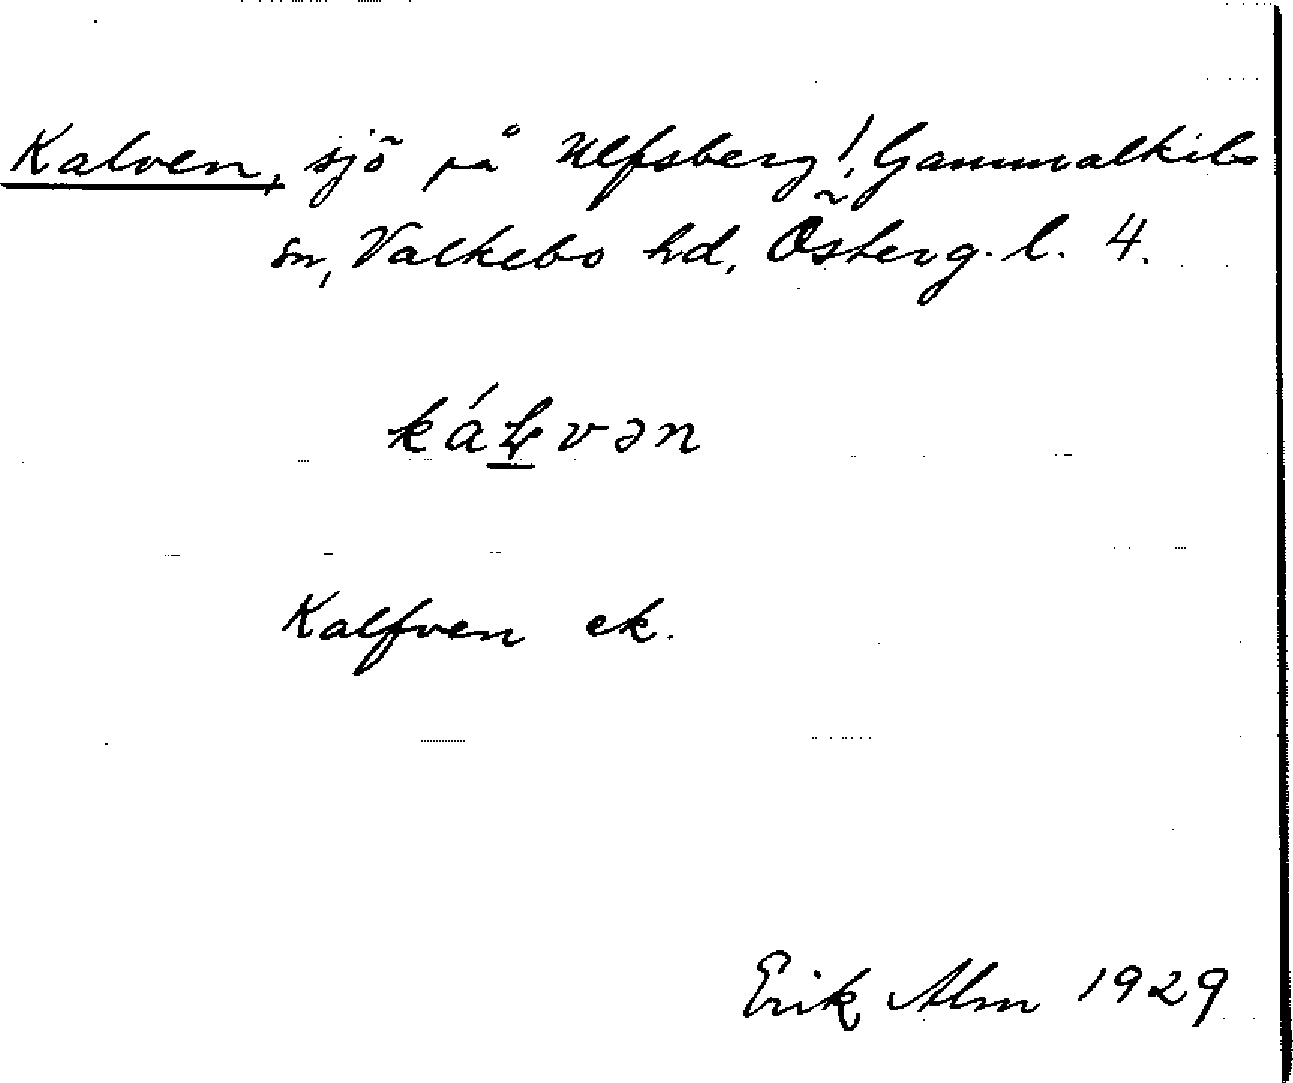 Kalven, sjö på Ulfsberg! Gammalkils
sn, Valkebo hd, Österg. l. 4.
káḷvən
Kalfven ek.
Erik Alm 1929